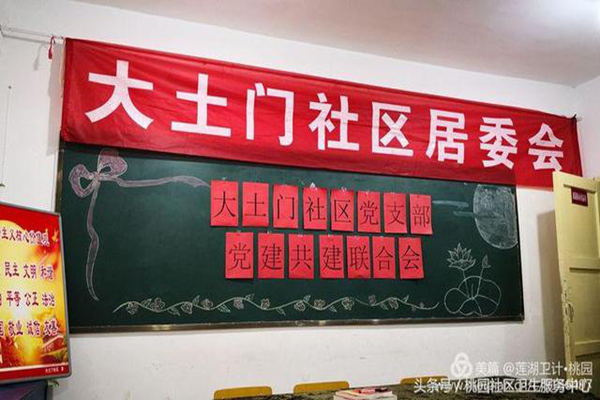 大土门社区居委会
大土门社区党支部
党建共建联合会
主义核心价值观
民主 文明 和谐
平等 公正 法治
敬业 诚信 友善
美篇 @莲湖卫计•桃园
头条号 / 桃园社区卫生服务中心